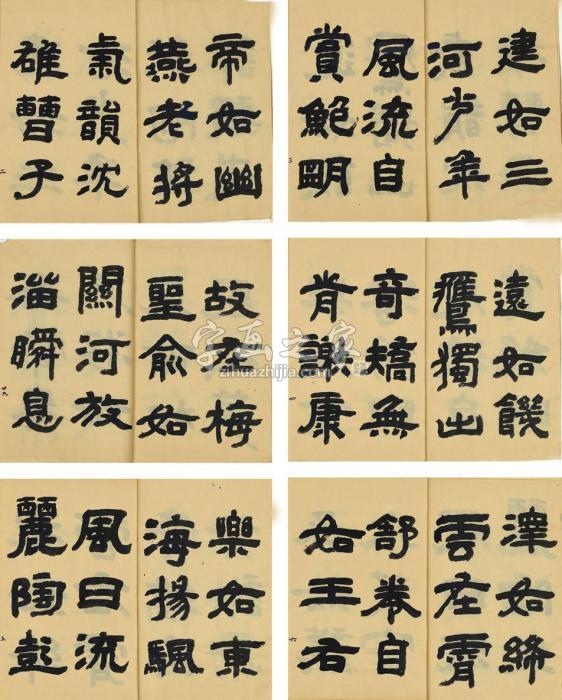 帝如幽
燕老將
氣韻沈
雄曹子
二
建如三
河少年
風流自
賞鮑明
三
故在梅
聖俞如
關河放
溜瞬息
廿九
遠如饑
鷹獨出
奇矯無
前謝康
四
樂如東
海揚颿
風日流
麗陶彭
五
澤如絳
雲在霄
舒卷自
如王右
六
字画之家
zihuazhijia.com